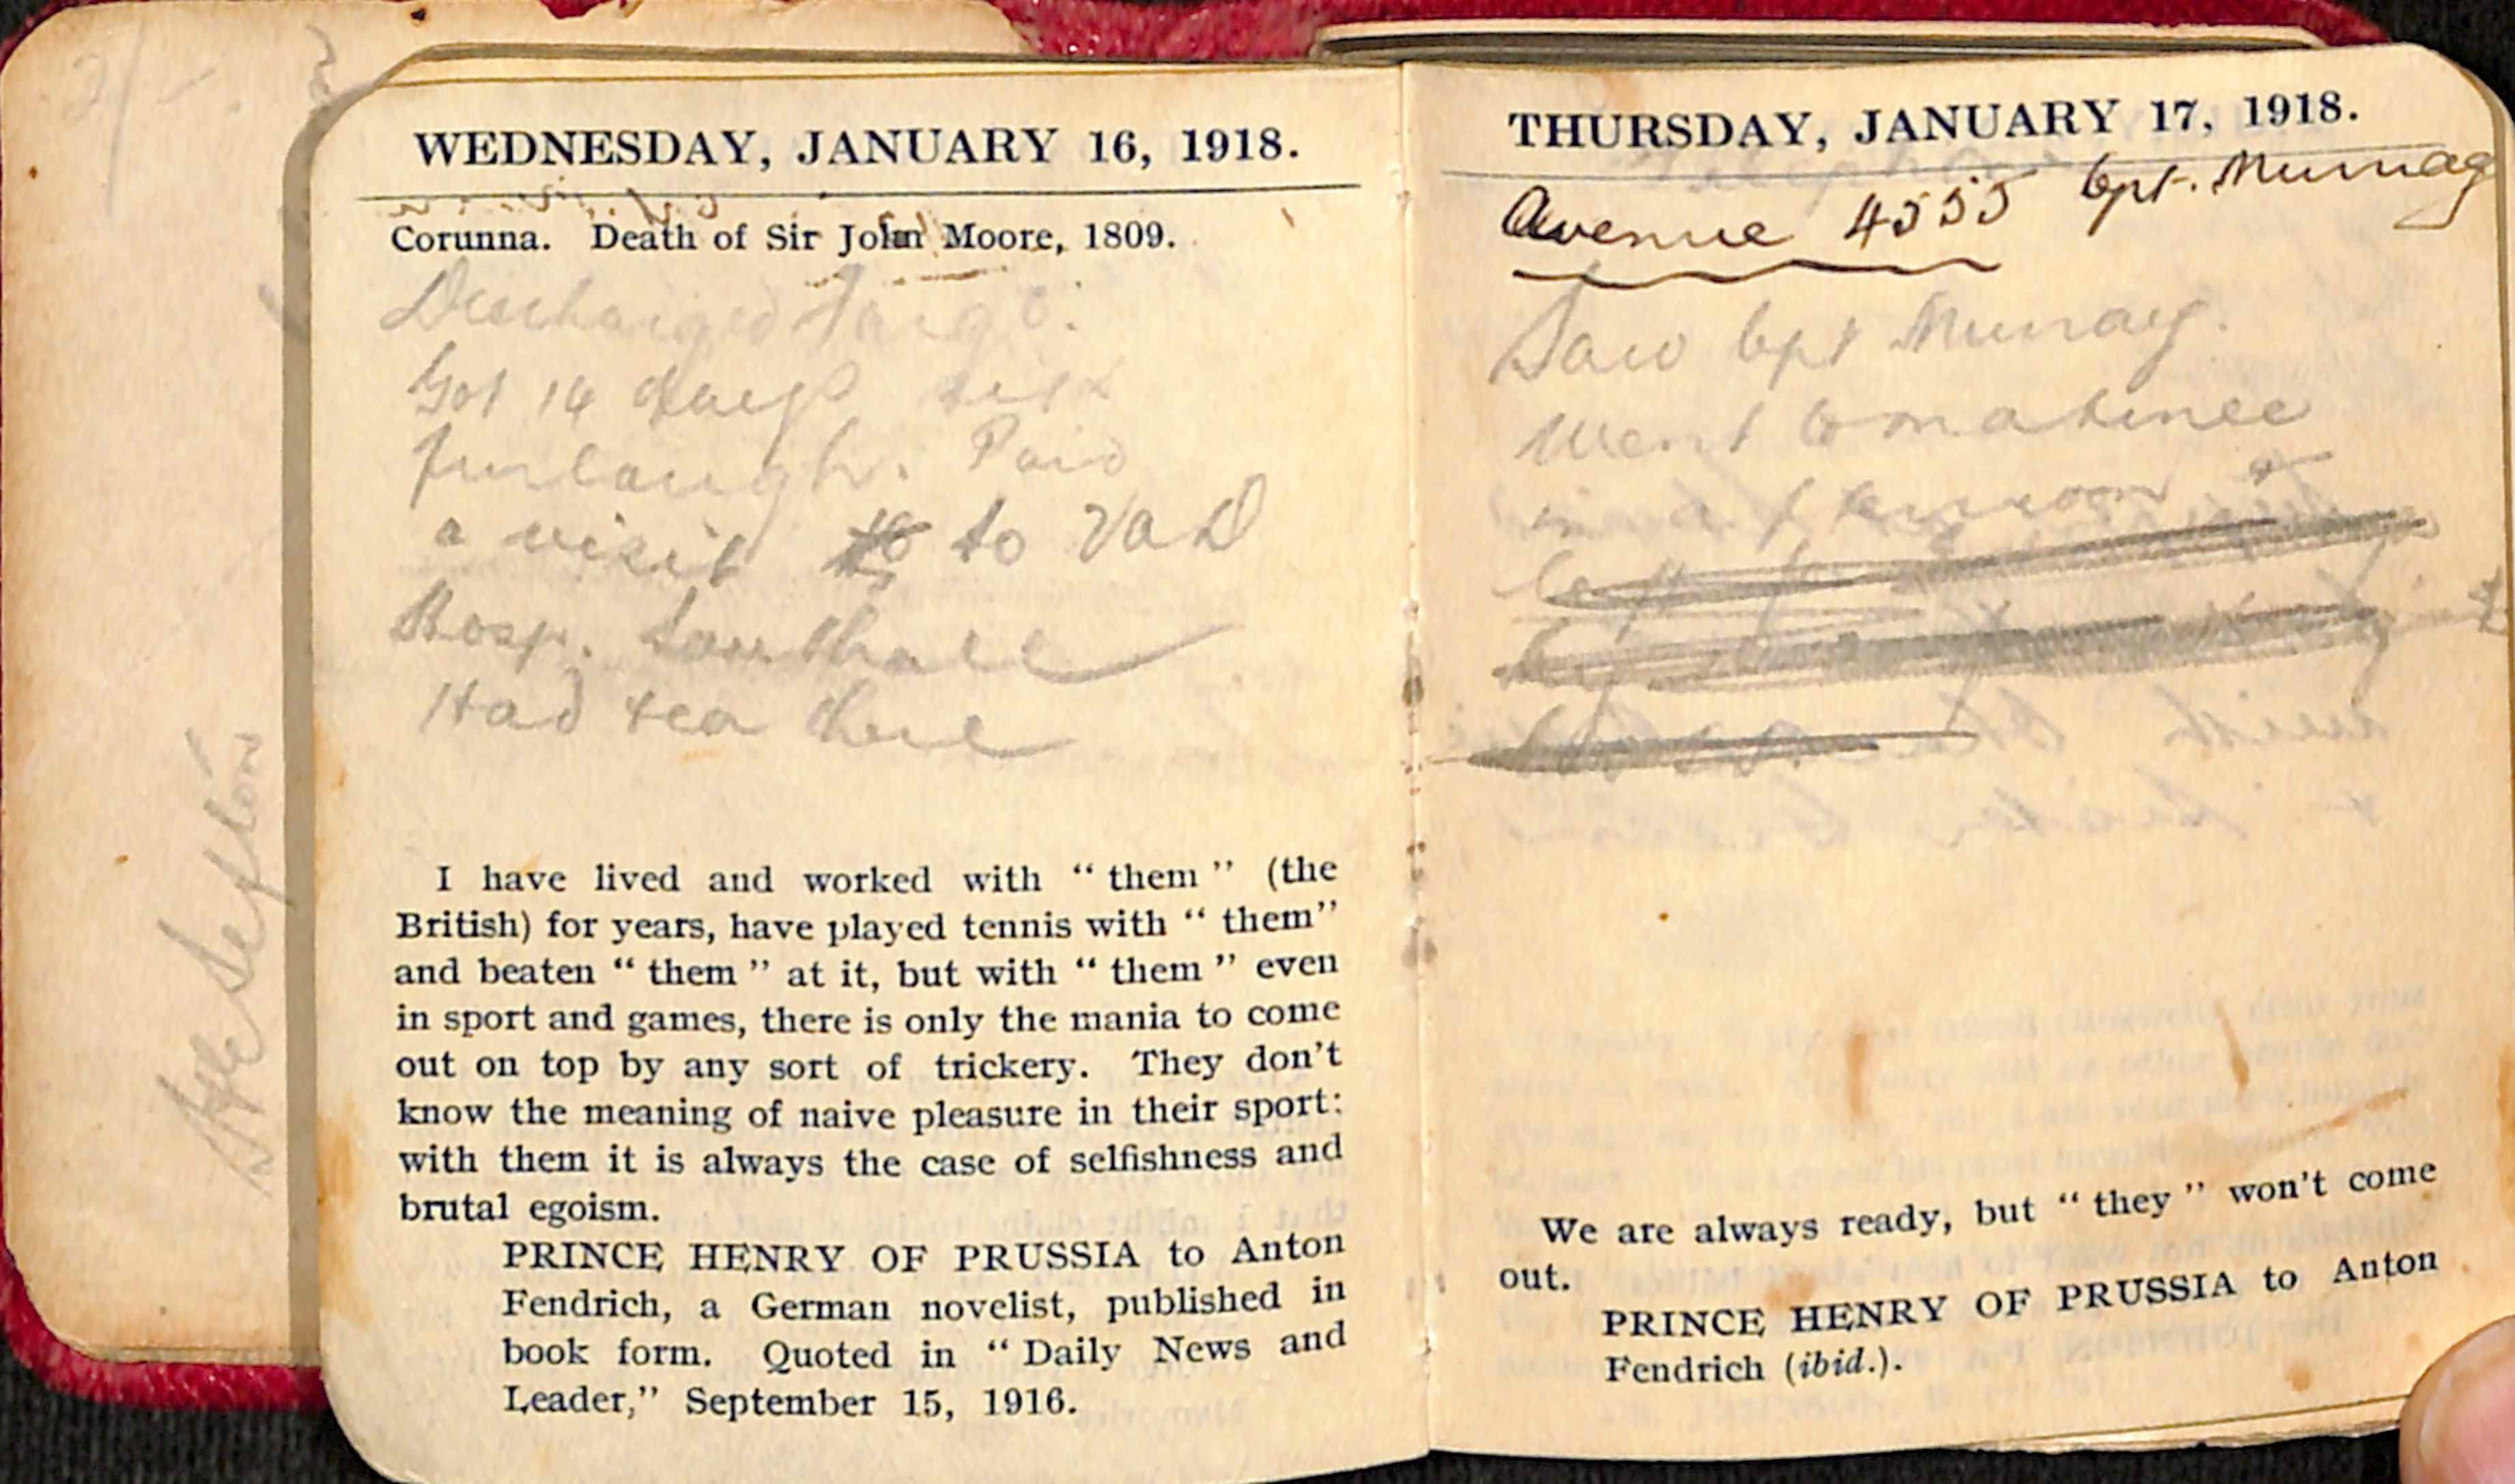 2/-.
Sefton
WEDNESDAY, JANUARY 16, 1918.
Corunna. Death of Sir John Moore, 1809.
Discharged
Got 14 days sick
furlough. Paid
a visit to to VAD
Hosp. Southall
Had tea there
I have lived and worked with “ them ” (the
British) for years, have played tennis with “ them”
and beaten “ them ” at it, but with “ them ” even
in sport and games, there is only the mania to come
out on top by any sort of trickery. They don't
know the meaning of naive pleasure in their sport:
with them it is always the case of selfishness and
brutal egoism.
PRINCE HENRY OF PRUSSIA to Anton
Fendrich, a German novelist, published in
book form. Quoted in “ Daily News and
Leader,” September 15, 1916.
THURSDAY, JANUARY 17, 1918.
Avenue 4555 Cpt. Murray
Saw Cpt Murray.
Went to matinee
in afternoon &
We are always ready, but “ they ” won't come
out.
PRINCE HENRY OF PRUSSIA to Anton
Fendrich (ibid.).